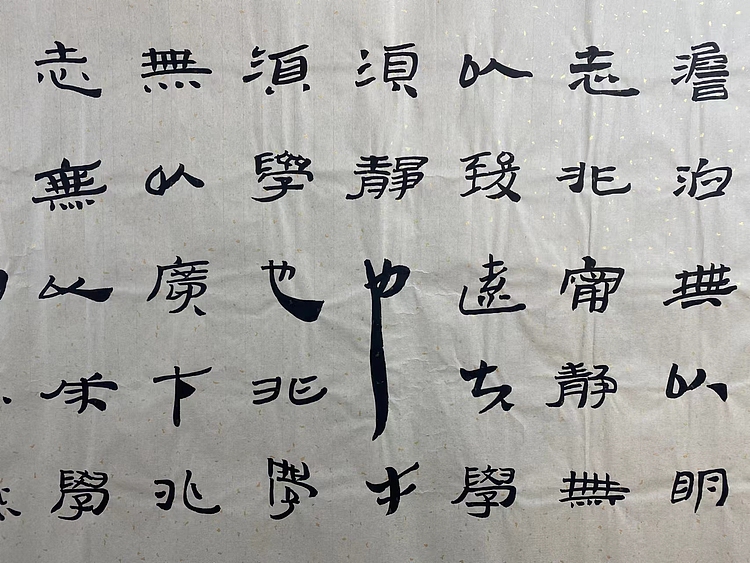 澹泊無以明
志非甯靜無
以致遠夫學
須靜也才
須學也非學
無以廣才非
志無以成學